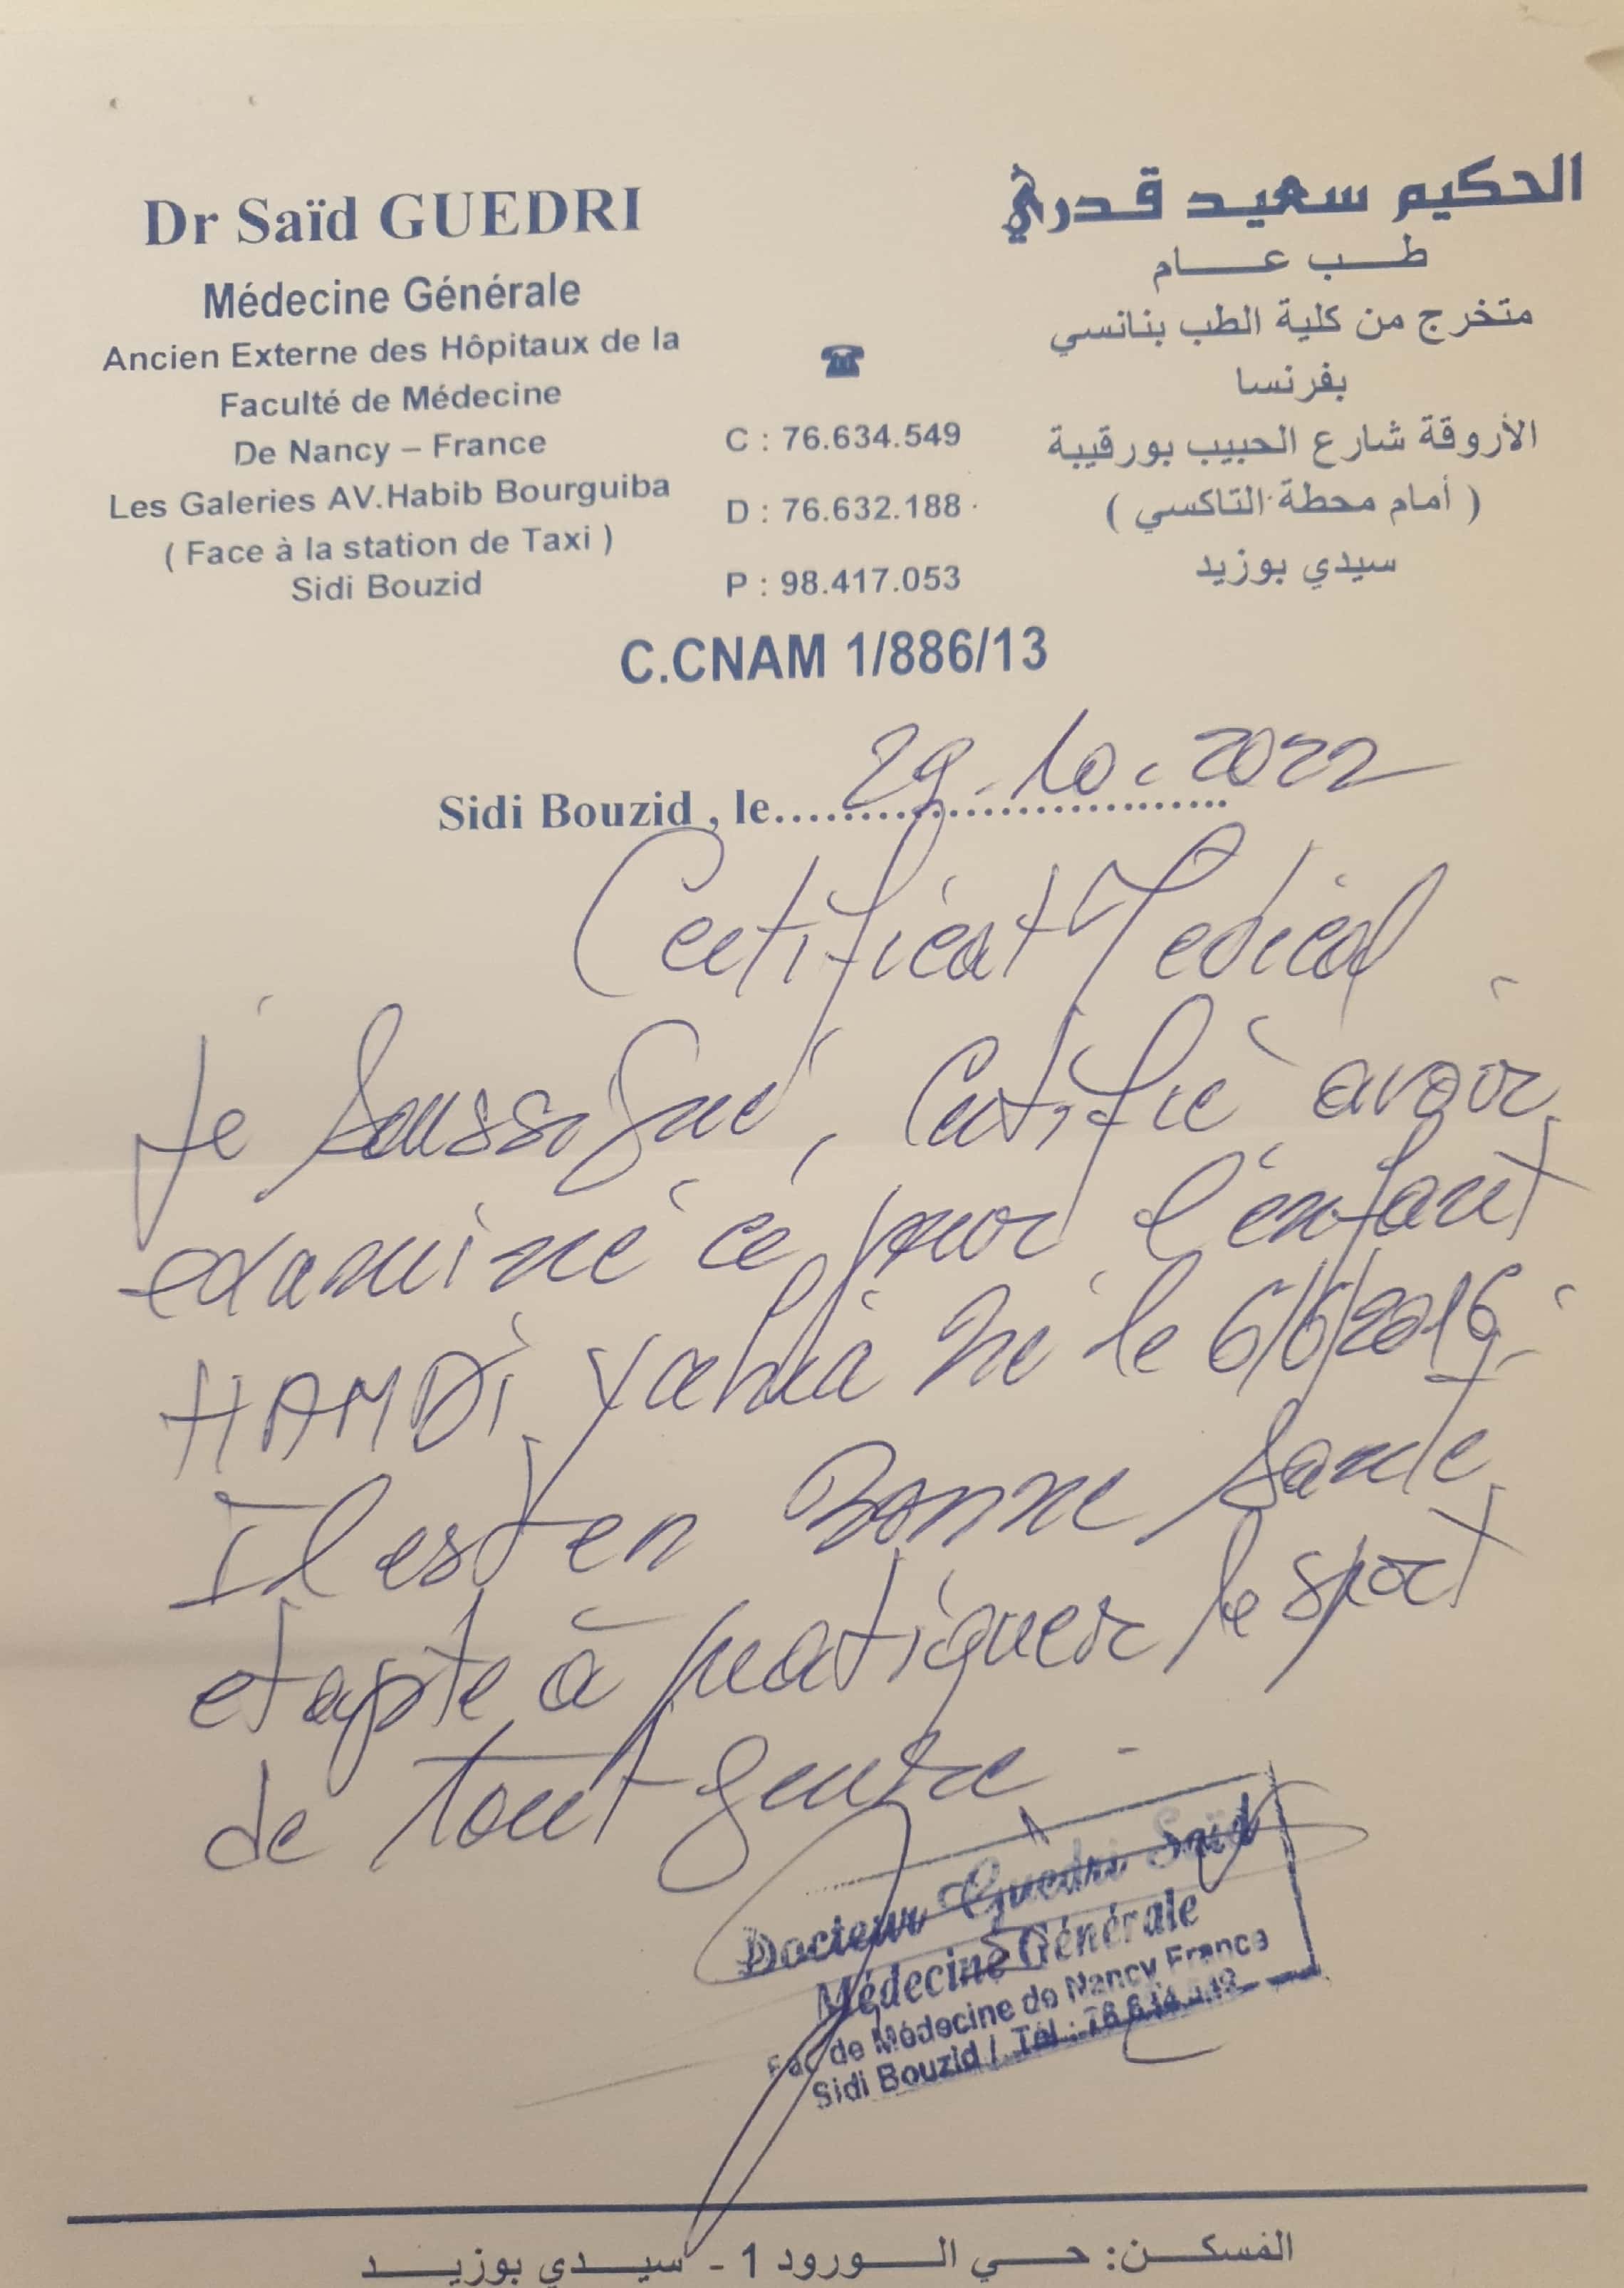 Dr Saïd GUEDRI
Médecine Générale
Ancien Externe des Hôpitaux de la
Faculté de Médecine
De Nancy – France
Les Galeries AV.Habib Bourguiba
( Face à la station de Taxi )
Sidi Bouzid
☎
C : 76.634.549
D : 76.632.188
P : 98.417.053
الحكيم سعيد قدري
طب عام
متخرج من كلية الطب بنانسي
بفرنسا
الأروقة شارع الحبيب بورقيبة
( أمام محطة التاكسي )
سيدي بوزيد
C.CNAM 1/886/13
Sidi Bouzid , le 29.10.2022
Certificat Medical
Je Soussigné, Certifie avoir
examiné ce jour l'enfant
HAMDI Yahia né le 6/6/2016.
Il est en Bonne Santé
et apte à pratiquer le sport
de tout genre.
Docteur Guedri Saïd
Médecine Générale
Fac de Médecine de Nancy France
Sidi Bouzid / Tél : 76.634.549
المسكن: حي الورود 1 - سيدي بوزيد